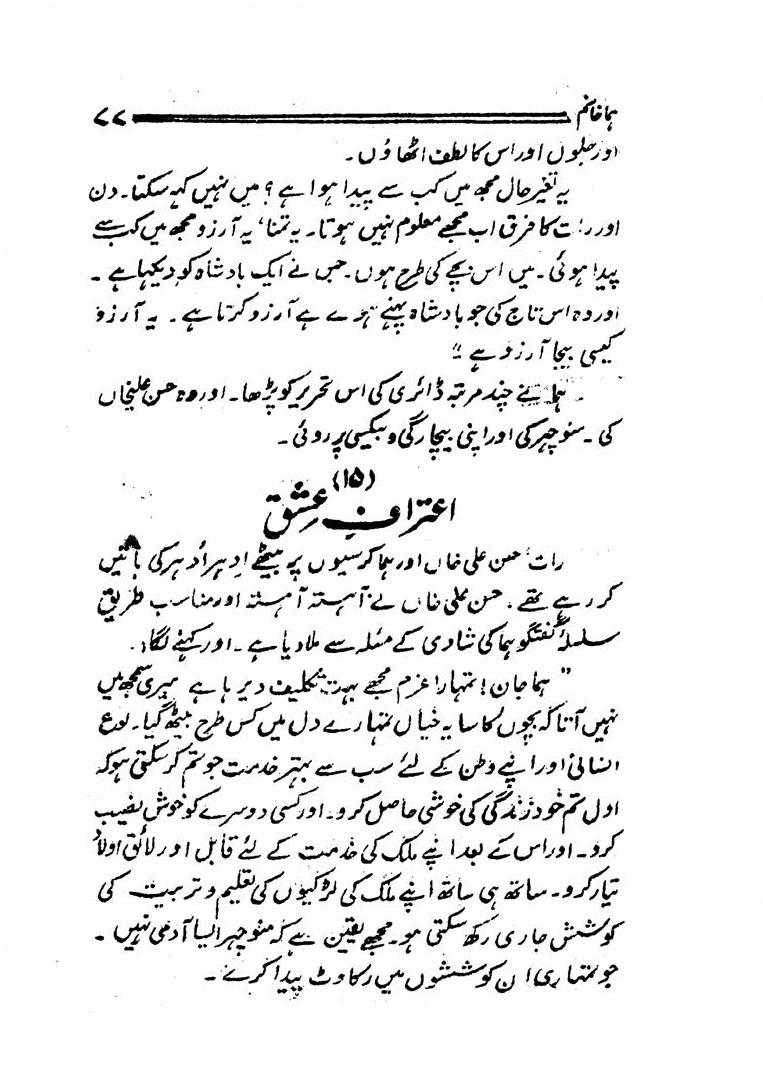 ہما خانم ۷۷
اور جلوں اور اس کا لطف اٹھاؤں۔
یہ تغیر حال مجھ میں کب سے پیدا ہوا ہے؟ میں نہیں کہہ سکتا۔ دن
اور رات کا فرق اب مجھے معلوم نہیں ہوتا۔ یہ تمنا، یہ آرزو مجھ میں کب سے
پیدا ہوئی۔ میں اس بچے کی طرح ہوں۔ جس نے ایک بادشاہ کو دیکھا ہے۔
اور وہ اس تاج کی جو بادشاہ پہنے ہوئے ہے آرزو کرتا ہے۔ یہ آرزو
کیسی بیجا آرزو ہے"
ہما نے چند مرتبہ ڈائری کی اس تحریر کو پڑھا۔ اور وہ حسن علیخاں
کی۔ منوچہر کی اور اپنی بیچارگی و بیکسی پر روئی۔
(۱۵)
اعترافِ عشق
رات، حسن علی خاں اور ہما کرسیوں پر بیٹھے اِدہر اُدہر کی باتیں
کر رہے تھے۔ حسن علی خاں نے آہستہ آہستہ اور مناسب طریق
سلسلۂ گفتگو ہما کی شادی کے مسئلہ سے ملا دیا ہے۔ اور کہنے لگا:
"ہما جان! تمہارا عزم مجھے بہت تکلیف دیرہا ہے میری سمجھ میں
نہیں آتا کہ بچوں کا سا یہ خیال تمہارے دل میں کس طرح بیٹھ گیا۔ نوع
انسانی اور اپنے وطن کے لئے سب سے بہتر خدمت جو تم کر سکتی ہو کہ
اول تم خود زندگی کی خوشی حاصل کرو۔ اور کسی دوسرے کو خوش نصیب
کرو۔ اور اس کے بعد اپنے ملک کی خدمت کے لئے قابل اور لائق اولاد
تیار کرو۔ ساتھ ہی ساتھ اپنے ملک کی لڑکیوں کی تعلیم و تربیت کی
کوشش جاری رکھ سکتی ہو۔ مجھے یقین ہے کہ منوچہر ایسا آدمی نہیں۔
جو تمہاری ان کوششوں میں رکاوٹ پیدا کرے۔